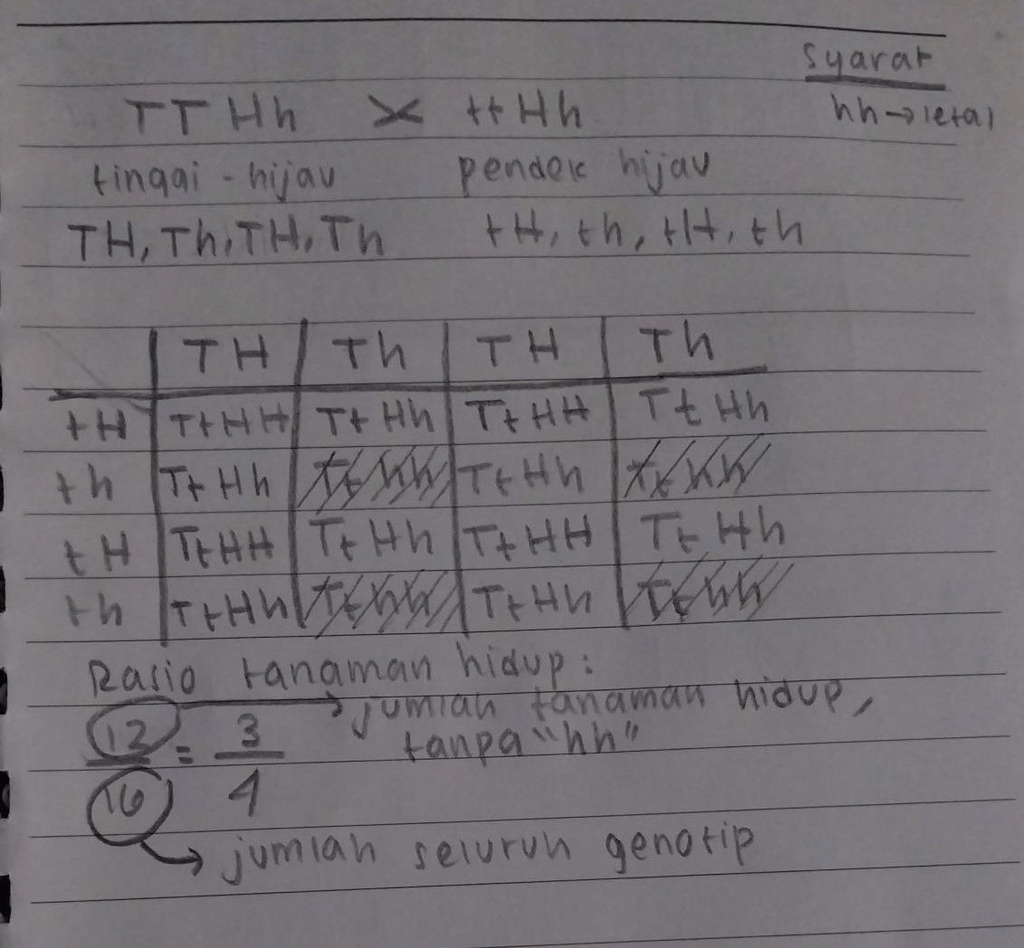 Syarat
TTHh X ttHh
hh→letal
tinggi - hijau pendek hijau
TH, Th, TH, Th tH, th, tH, th
TH Th TH Th
tH TtHH TtHh TtHH TtHh
th TtHh Tthh TtHh Tthh
tH TtHH TtHh TtHH TtHh
th TtHh Tthh TtHh Tthh
Rasio tanaman hidup:
12 = 3 → jumlah tanaman hidup,
tanpa "hh"
16 4
→ jumlah seluruh genotip